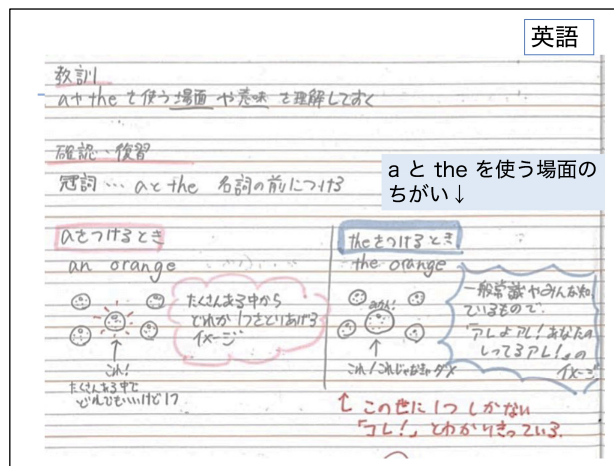 英語
教訓
aやtheを使う場面や意味を理解しておく
確認・復習
冠詞…aとthe 名詞の前につける
a と the を使う場面の
ちがい↓
aをつけるとき
an orange
たくさんある中から
どれか1つをとりあげる
イメージ
これ!
たくさんある中で
どれでもいいけど1つ
theをつけるとき
the orange
みかん!
これ!これじゃなきゃダメ
一般常識やみんな知
ているもので、
「アレよアレ!あなたの
しってるアレ!」の
イメージ
↑ この世に1つしかない
「コレ!」とわかりきっている.